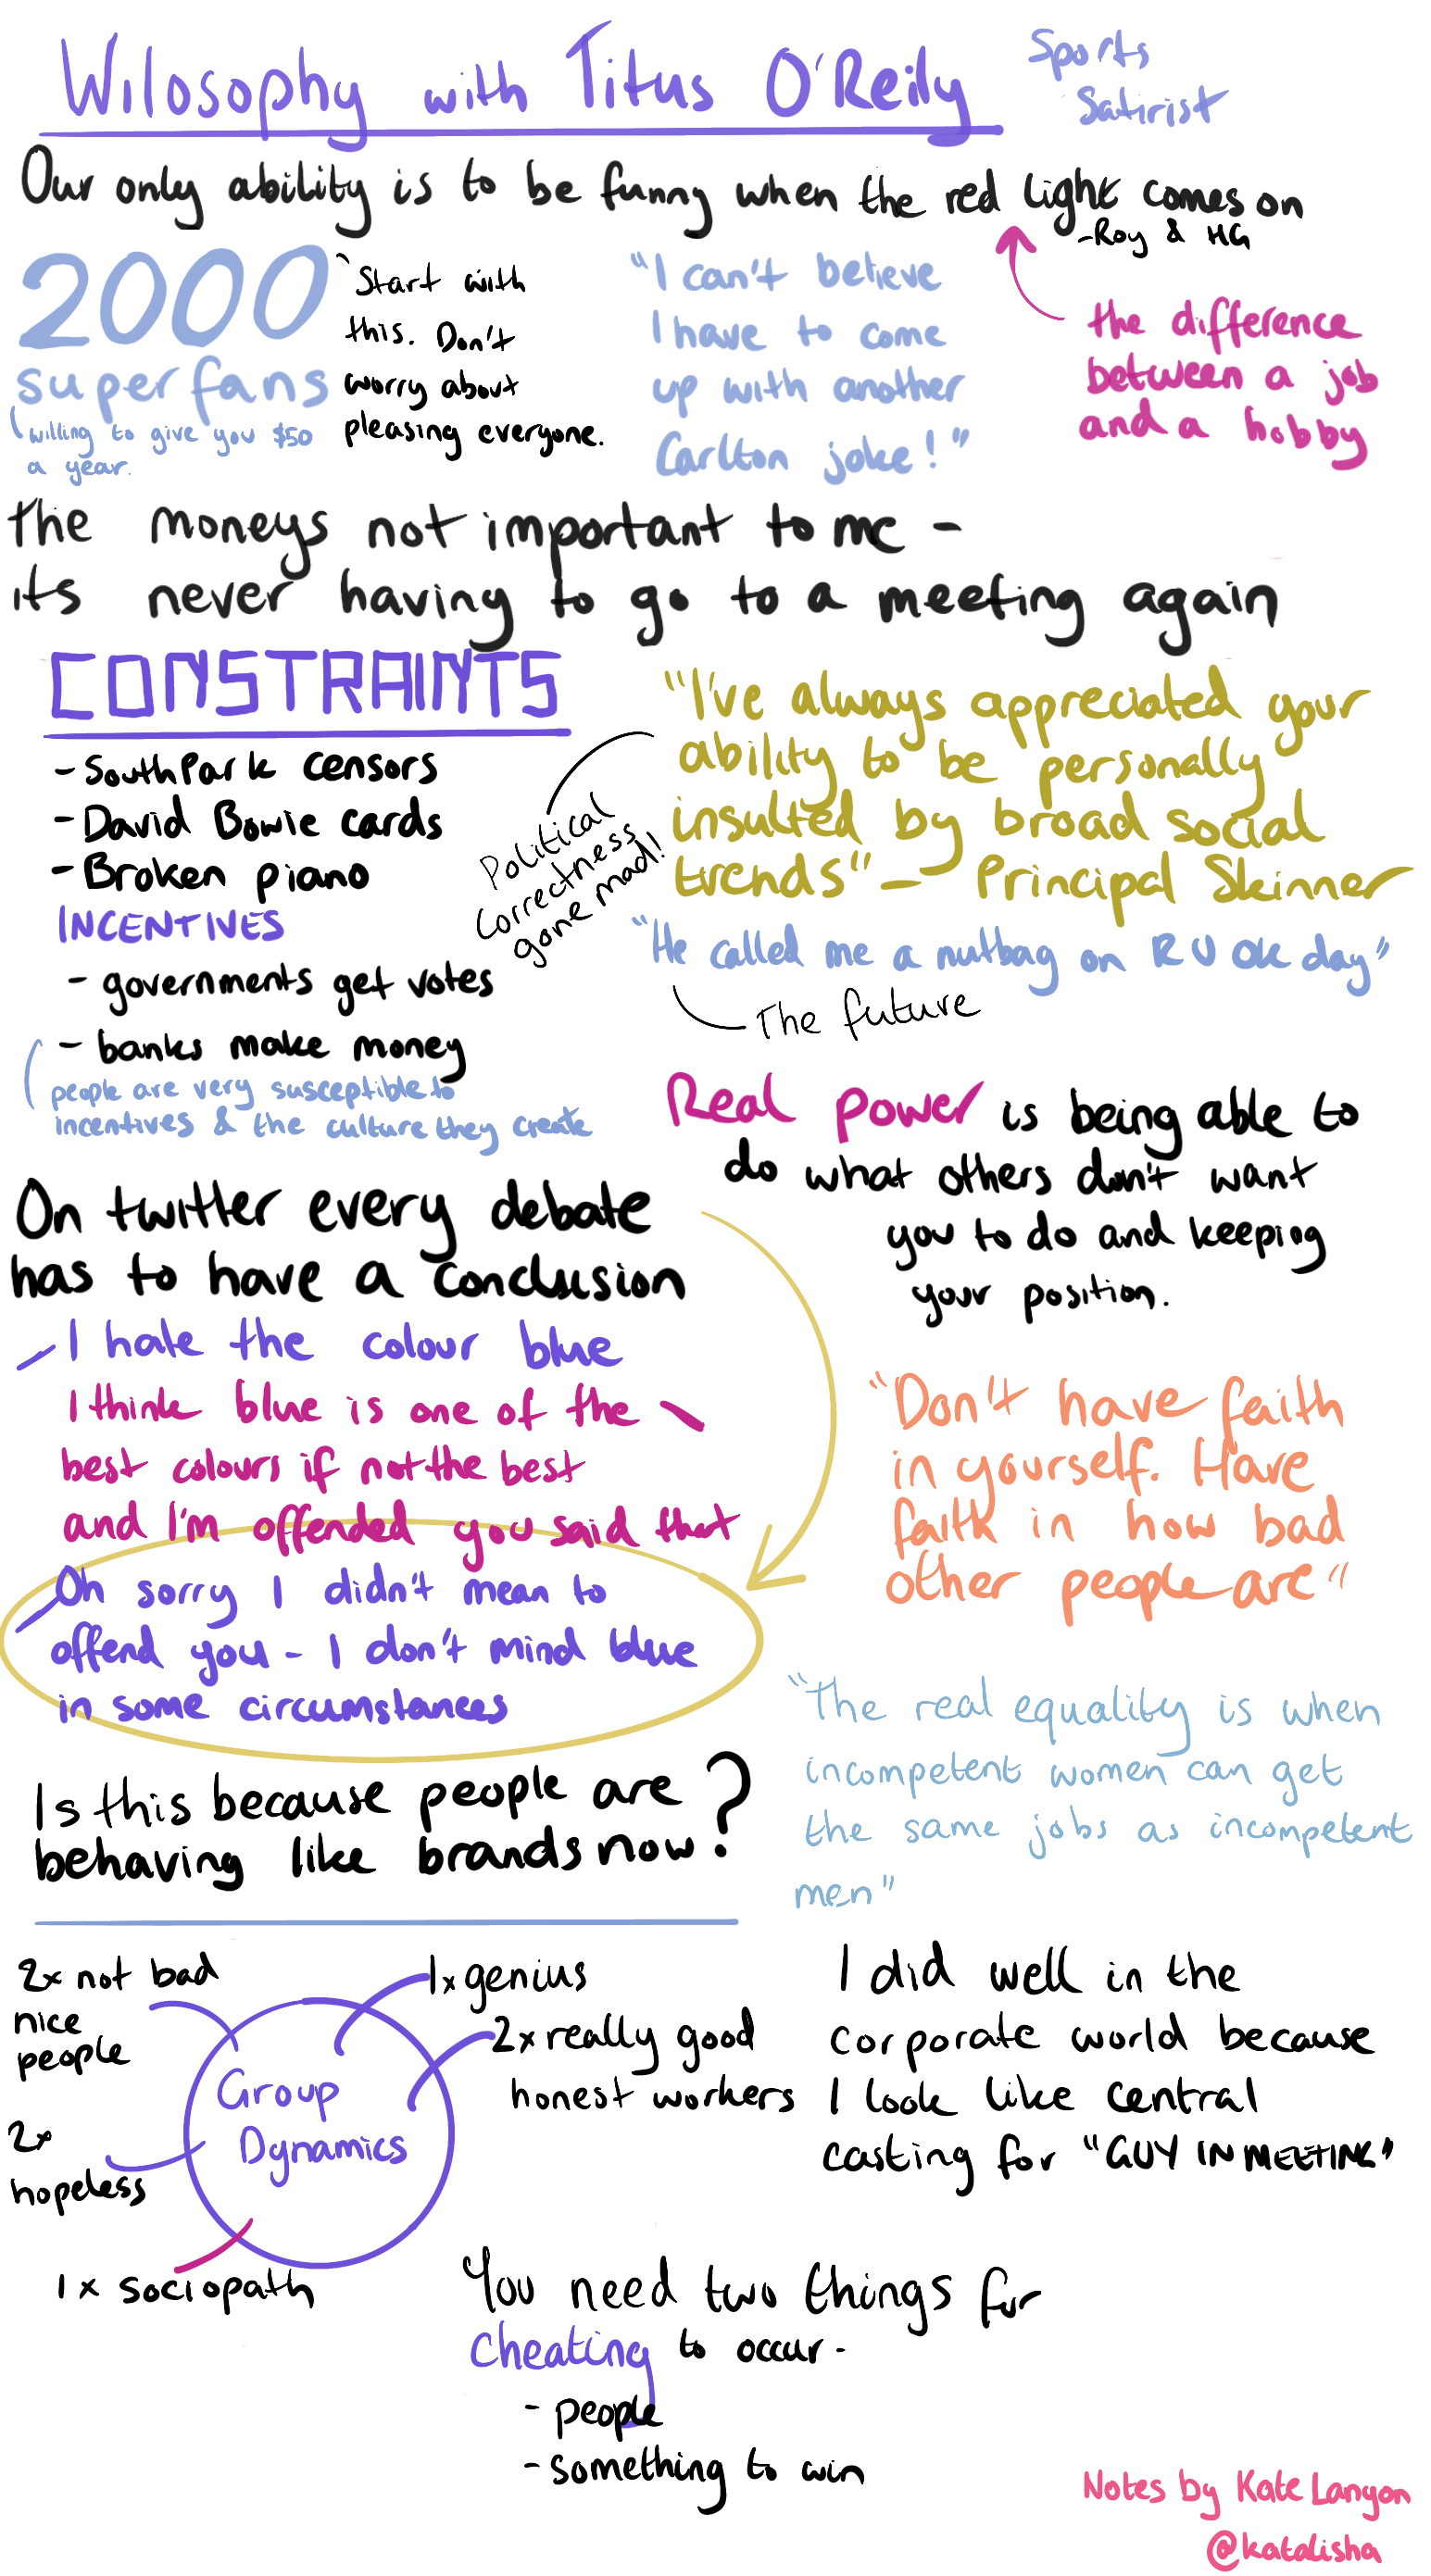 Wilosophy with Titus O'Reily
Sports
Satirist
Our only ability is to be funny when the red light comes on
-Roy & HG
the difference
between a job
and a hobby
2000
superfans
willing to give you $50
a year.
Start with
this. Don't
worry about
pleasing everyone.
"I can't believe
I have to come
up with another
Carlton joke!"
The moneys not important to me -
its never having to go to a meeting again
CONSTRAINTS
- SouthPark censors
- David Bowie cards
- Broken piano
INCENTIVES
- governments get votes
- banks make money
people are very susceptible to
incentives & the culture they create
"I've always appreciated your
ability to be personally
insulted by broad social
trends" - Principal Skinner
Political
correctness
gone mad!
"He called me a nutbag on R U OK day"
The future
Real power is being able to
do what others don't want
you to do and keeping
your position.
On twitter every debate
has to have a conclusion
I hate the colour blue
I think blue is one of the
best colours if not the best
and I'm offended you said that
Oh sorry I didn't mean to
offend you - I don't mind blue
in some circumstances
Is this because people are
behaving like brands now?
"Don't have faith
in yourself. Have
faith in how bad
other people are"
"The real equality is when
incompetent women can get
the same jobs as incompetent
men"
2x not bad
nice
people
1x genius
2x really good
honest workers
Group
Dynamics
2x
hopeless
1x sociopath
I did well in the
corporate world because
I look like central
casting for "GUY IN MEETING"
You need two things for
cheating to occur -
- people
- something to win
Notes by Kate Lanyon
@katalisha